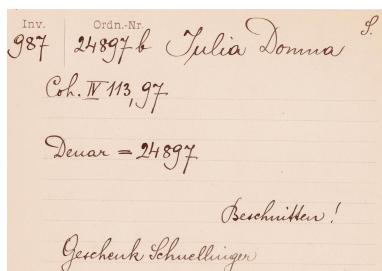 Inv. Ordn.-Nr. S.
987 24897 b Julia Domna
Coh. IV 113, 97
Denar = 24897
Beschnitten !
Geschenk Schnellinger